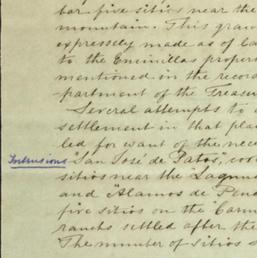 for five sitios near the
mountain. This gran
expressely made as of Ca
to the Encinillas proper
mentioned in the record
partment of the Treasu
Several attempts to
settlement in that pla
led for want of the nece
Intrusions San José de Patos, 
sitios near the "Laguna
and "Alamos de Pena
five sitios on the "Carm
ranchs settled after the
The number of sitios